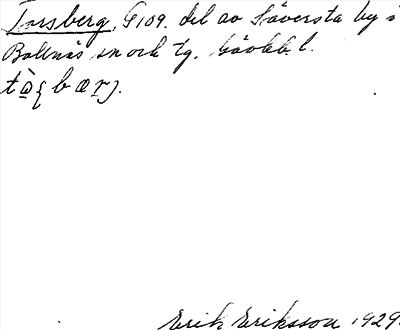 Torsberg, G109. del av Säversta by i
Bollnäs sn och tg. Gävleb. l.
tò̱ʃbærj.
Erik Eriksson 1929.